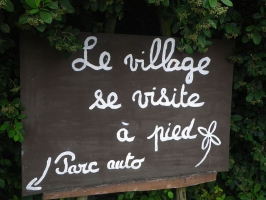 Le village
se visite
à pied
Parc auto